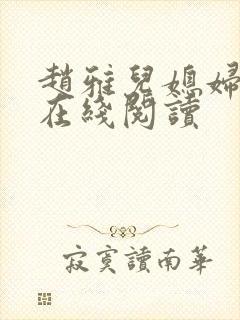 趙雅兒媳婦
在綫閱讀
寂寞讀南華